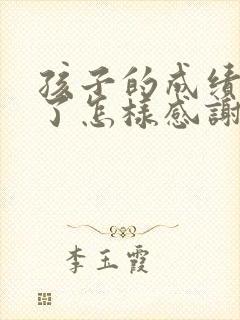 孩子的成绩
了怎樣感謝
李玉霞